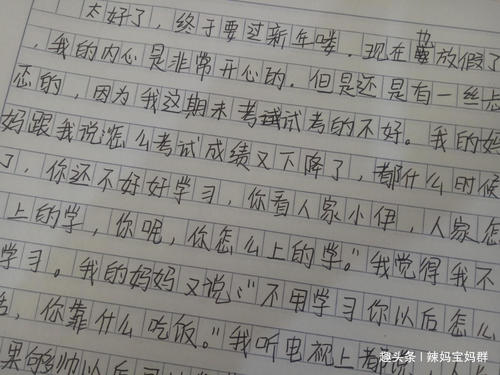 太好了，终于要过新年喽．现在也放假了
，我的内心是非常开心的．但是还是有一丝
恋的，因为我这期末考试试考的不好。我的妈
妈跟我说怎么考试成绩又下降了，都什么时候
了，你还不好好学习，你看人家小伊，人家怎
上的学，你呢，你怎么上的学。"我觉得我不
学习。我的妈妈又说："不用学习你以后怎么
，你靠什么吃饭。"我听电视上都说，
果够帅以后可以
趣头条 | 辣妈宝妈群